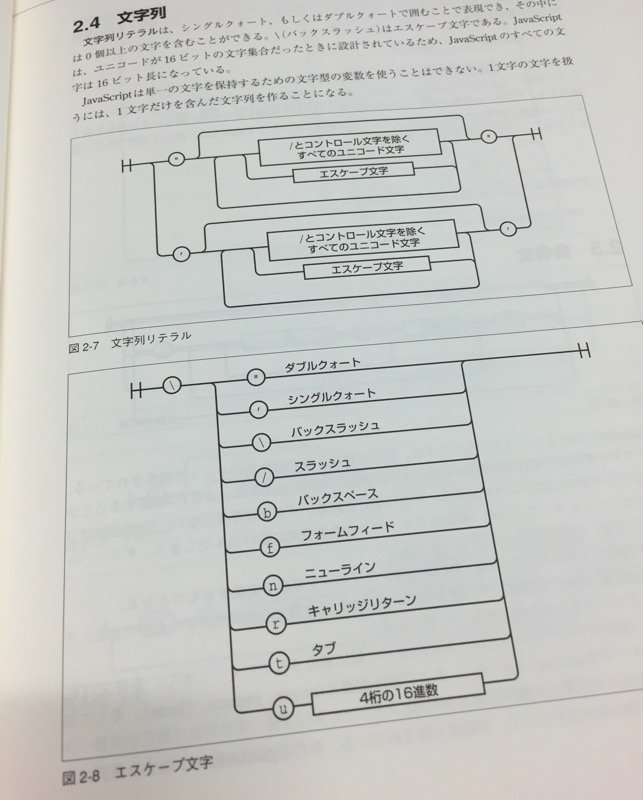 2.4 文字列
文字列リテラルは、シングルクォート、もしくはダブルクォートで囲むことで表現でき、その中に
は0個以上の文字を含むことができる。\(バックスラッシュ)はエスケープ文字である。JavaScript
は、ユニコードが16ビットの文字集合だったときに設計されているため、JavaScriptのすべての文
字は16ビット長になっている。
JavaScriptは単一の文字を保持するための文字型の変数を使うことはできない。1文字の文字を扱
うには、1文字だけを含んだ文字列を作ることになる。
" /とコントロール文字を除く "
すべてのユニコード文字
エスケープ文字
' /とコントロール文字を除く '
すべてのユニコード文字
エスケープ文字
図2-7 文字列リテラル
\ " ダブルクォート
' シングルクォート
\ バックスラッシュ
/ スラッシュ
b バックスペース
f フォームフィード
n ニューライン
r キャリッジリターン
t タブ
u 4桁の16進数
図2-8 エスケープ文字